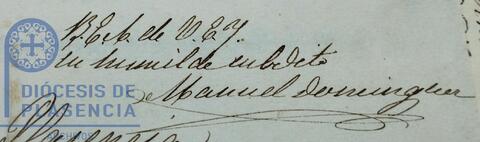 B. E. A. de V. E. Y.
su humilde subdito
Manuel Dominguez
DIÓCESIS DE
PLASENCIA